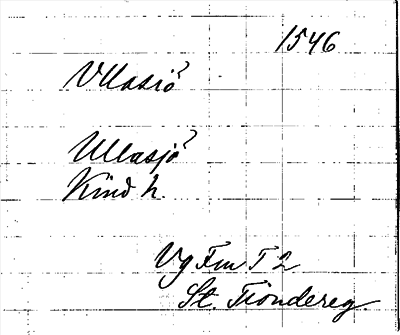 1546
Vllasiö?
Ullasjö?
Kind h.
Vg Fm T 2
St. Tiondereg.